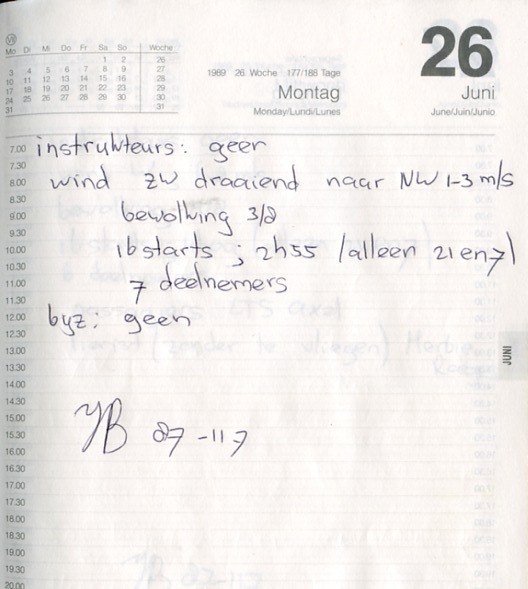 VII
Mo Di Mi Do Fr Sa So Woche
1 2 26
3 4 5 6 7 8 9 27
10 11 12 13 14 15 16 28
17 18 19 20 21 22 23 29
24 25 26 27 28 29 30 30
31 31
26
1989 26. Woche 177/188 Tage
Montag
Juni
Monday/Lundi/Lunes
June/Juin/Junio
7.00 instrukteurs: geen
7.30
8.00 wind ZW draaiend naar NW 1-3 m/s
8.30
9.00 bewolking 3/8
9.30
10.00 16 starts ; 2h55 (alleen 21 en 7)
10.30
11.00 7 deelnemers
11.30
12.00 byz: geen
12.30
13.00
JUNI
13.30
14.00
14.30
15.00
15.30 07-117
16.00
16.30
17.00
17.30
18.00
18.30
19.00
19.30
20.00